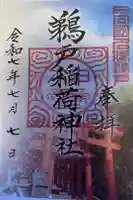 奉拝
鵜戸稲荷神社
令和七年七月七日